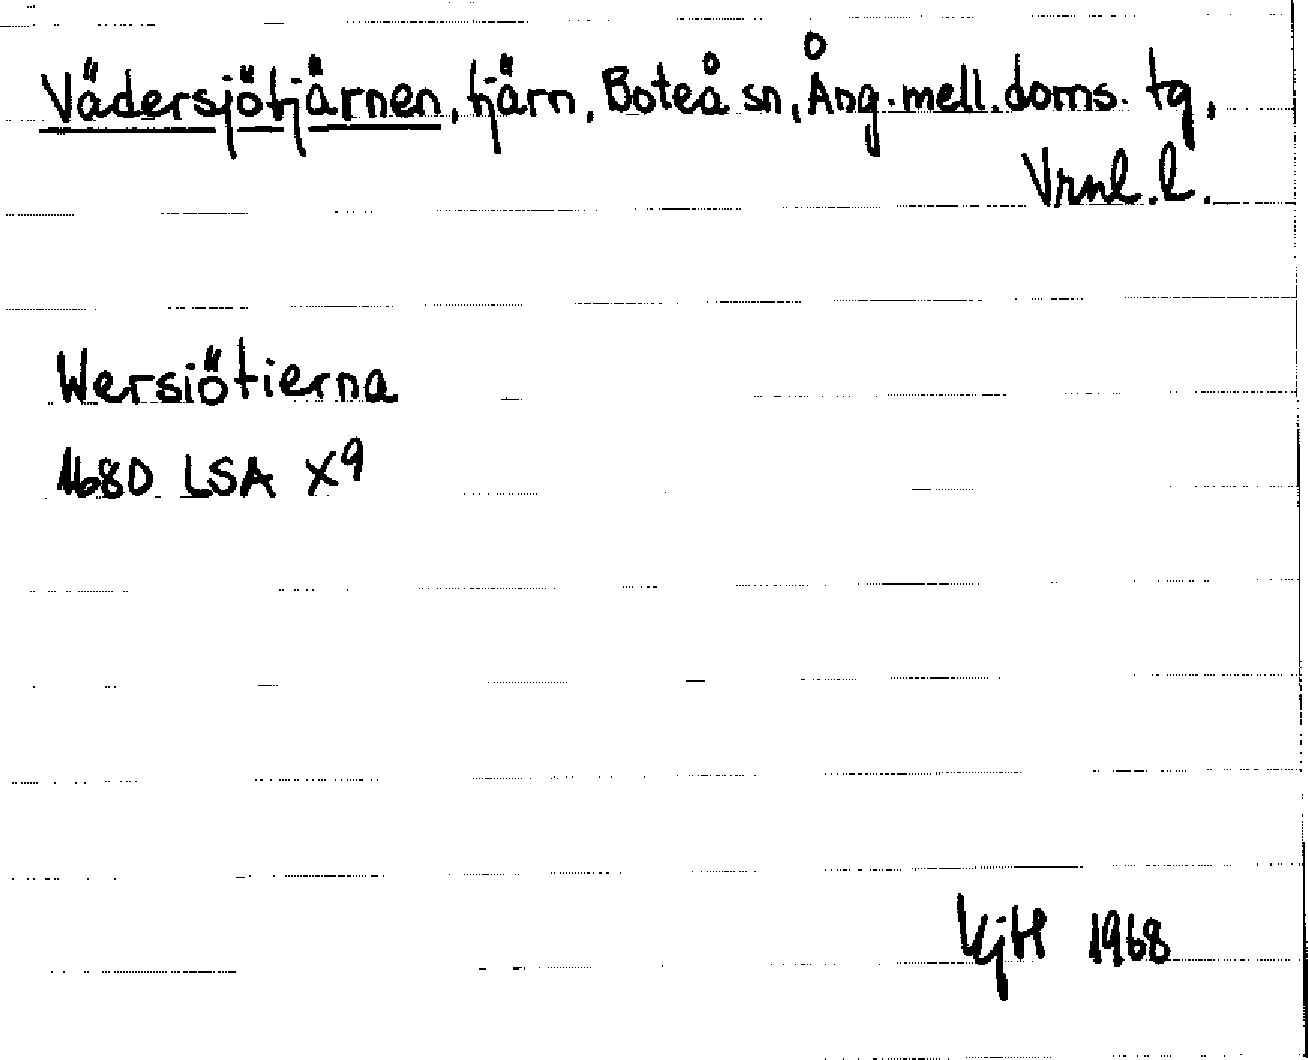 Vädersjötjärnen, tjärn, Boteå sn, Ång. mell. doms. tg,
Vrnl. l.
Wersiötierna
1680 LSA X9
KjH 1968